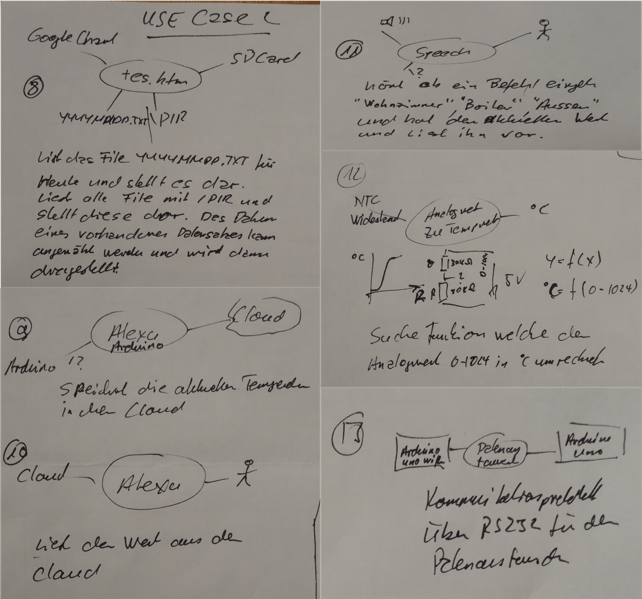 USE Case 2
Google Chart
SD Card
8
tes.htm
YYYYMMDD.TXT /DIR
Liest das File YYYYMMDD.TXT für
Heute und stellt es dar.
Liest alle File mit /DIR und
stellt diese dar. Das Datum
eines vorhandenen Datensatzes kann
angewählt werden und wird dann
dargestellt
9
Cloud
Alexa
Arduino
Arduino !?
Speichert die aktuellen Temperaturen
in der Cloud
10
Cloud
Alexa
Liest den Wert aus der
Cloud
11
Speach
?
hört ob ein Befehl eingeht
"Wohnzimmer" "Boiler" "Aussen"
und holt den aktuellen Wert
und liest ihn vor.
12
NTC
Widerstand
Analogwert
zu Temperatur
°C
°C
5V
y = f(x)
°C = f(0-1024)
Suche Funktion welche den
Analogwert 0-1024 in °C umrechnet
13
Arduino
uno wifi
Datenaus
tausch
Arduino
uno
Kommunikationsprotokoll
über RS232 für den
Datenaustausch